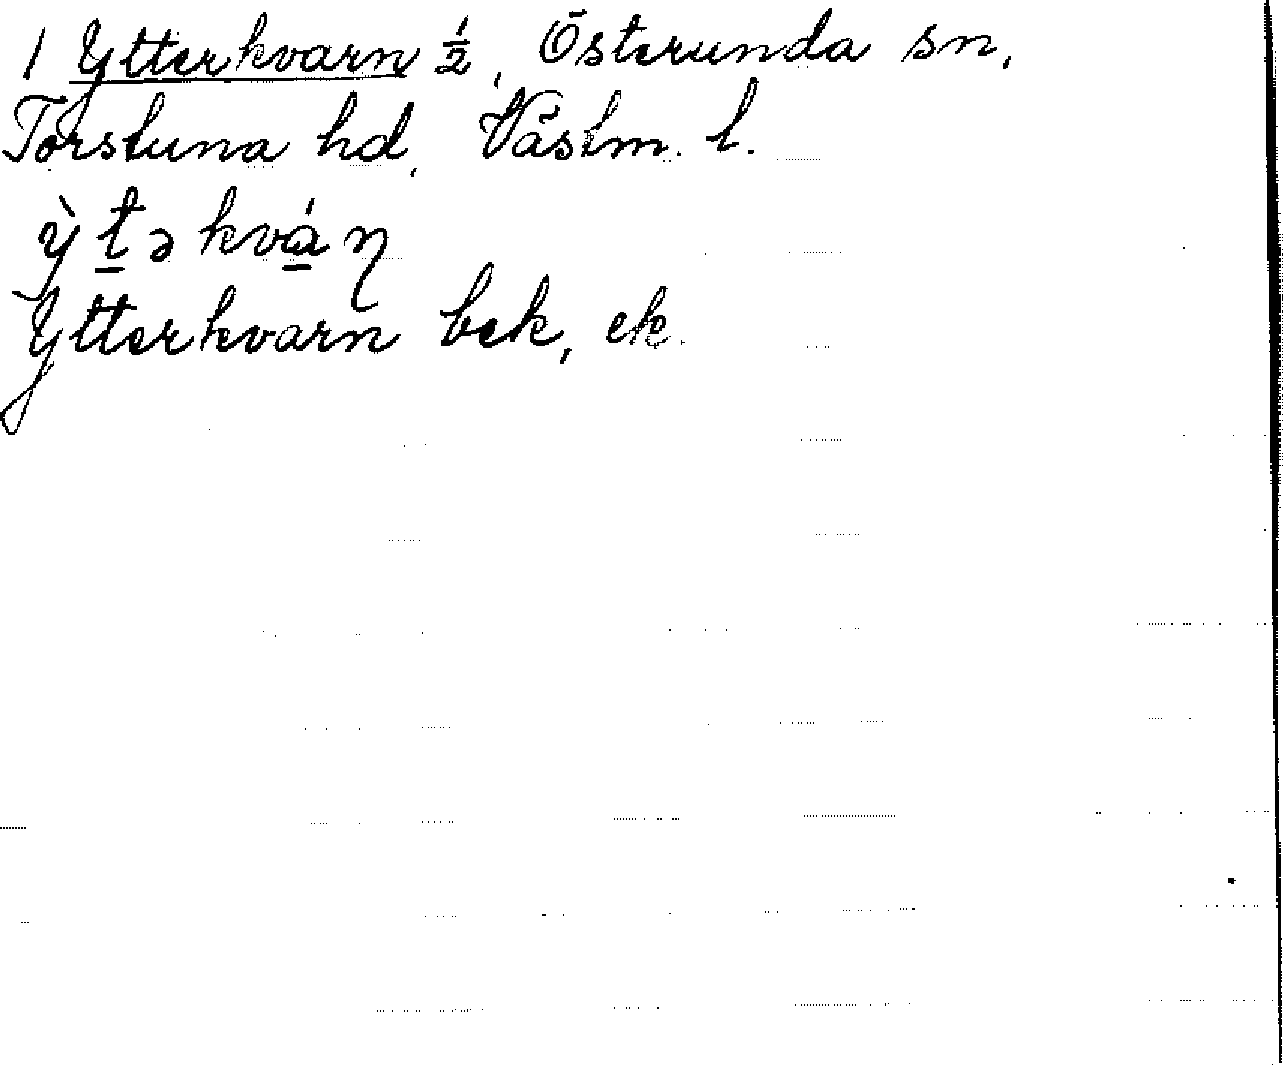 1 Ytterkvarn ½, Österunda sn,
Torstuna hd, Västm. l.
ỳt̲əkvá̲ɳ
Ytterkvarn bek, ek.